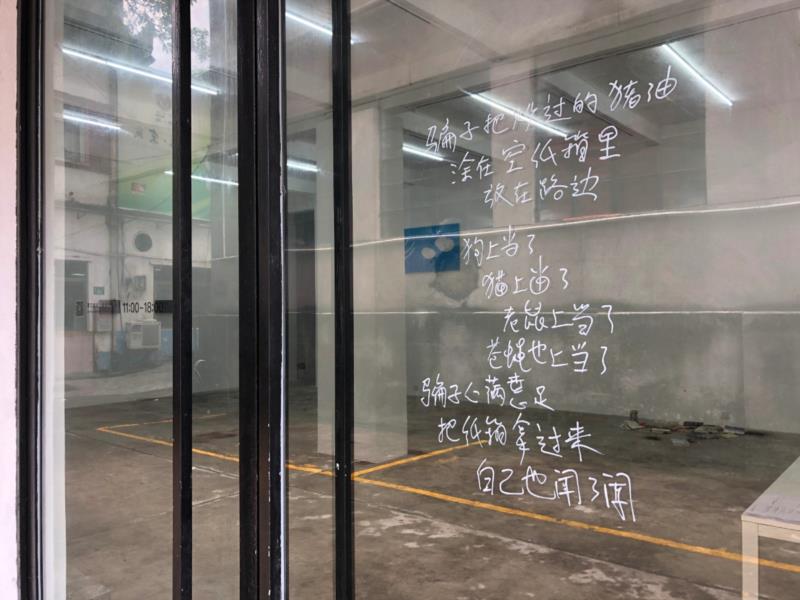 11:00-18:00
骗子把炸过的猪油
涂在空纸箱里
放在路边
狗上当了
猫上当了
老鼠上当了
苍蝇也上当了
骗子心满意足
把纸箱拿过来
自己也闻了闻